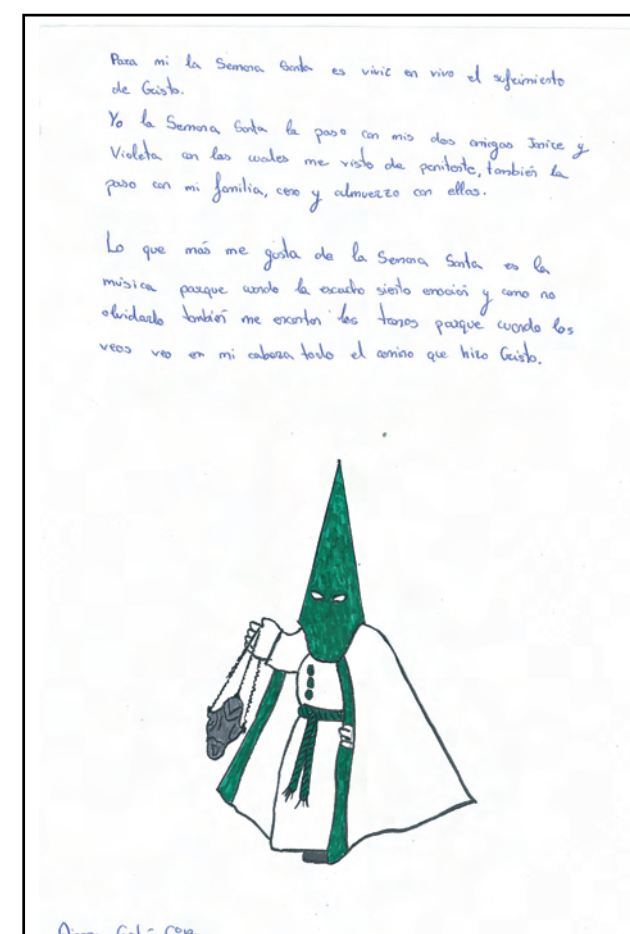 Para mi la Semana Santa es vivir en vivo el sufrimiento
de Cristo.
Yo la Semana Santa la paso con mis dos amigas Janice y
Violeta con las cuales me visto de penitente, también la
paso con mi familia, ceno y almuerzo con ellas.
Lo que más me gusta de la Semana Santa es la
música porque cuando la escucho siento emoción y como no
olvidarlo también me encantan los tronos porque cuando los
veos veo en mi cabeza todo el camino que hizo Cristo.